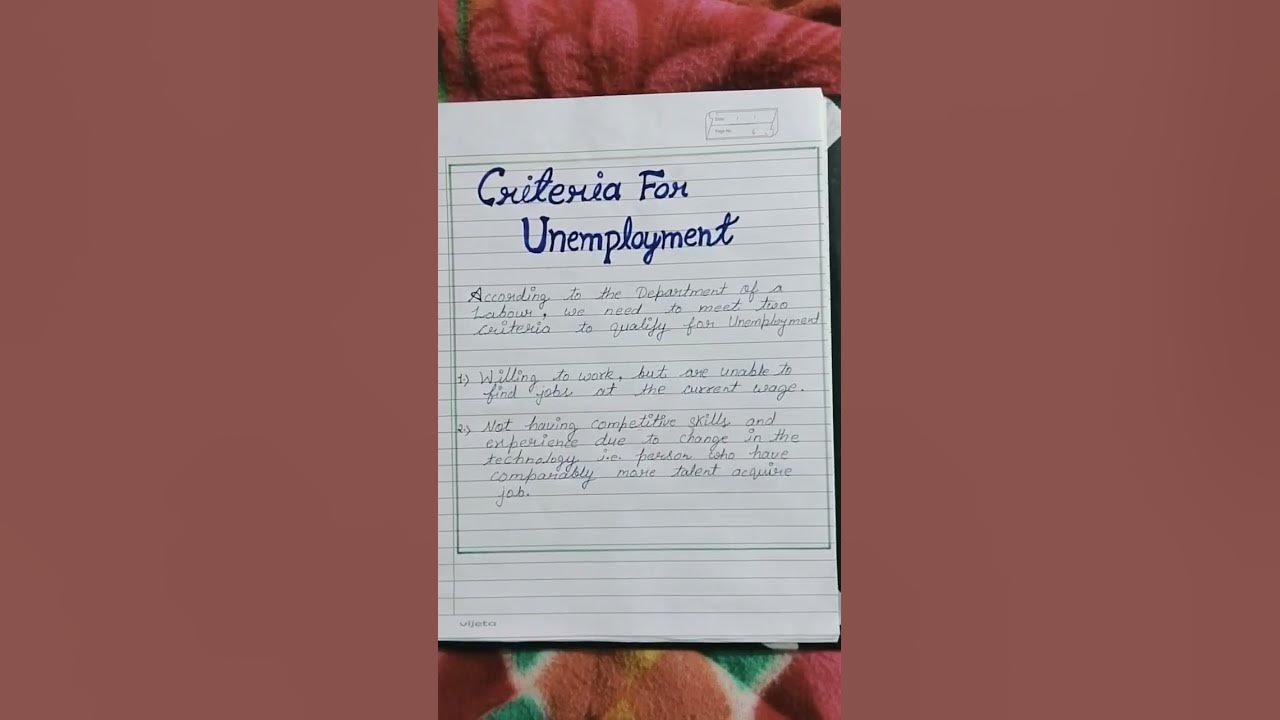 Date / /
Page No. 6
Criteria For
Unemployment
According to the Department of a
Labour, we need to meet two
criteria to qualify for Unemployment
1.) Willing to work, but are unable to
find jobs at the current wage.
2.) Not having competitive skills and
experience due to change in the
technology i.e. person who have
comparably more talent acquire
job.
vijeta